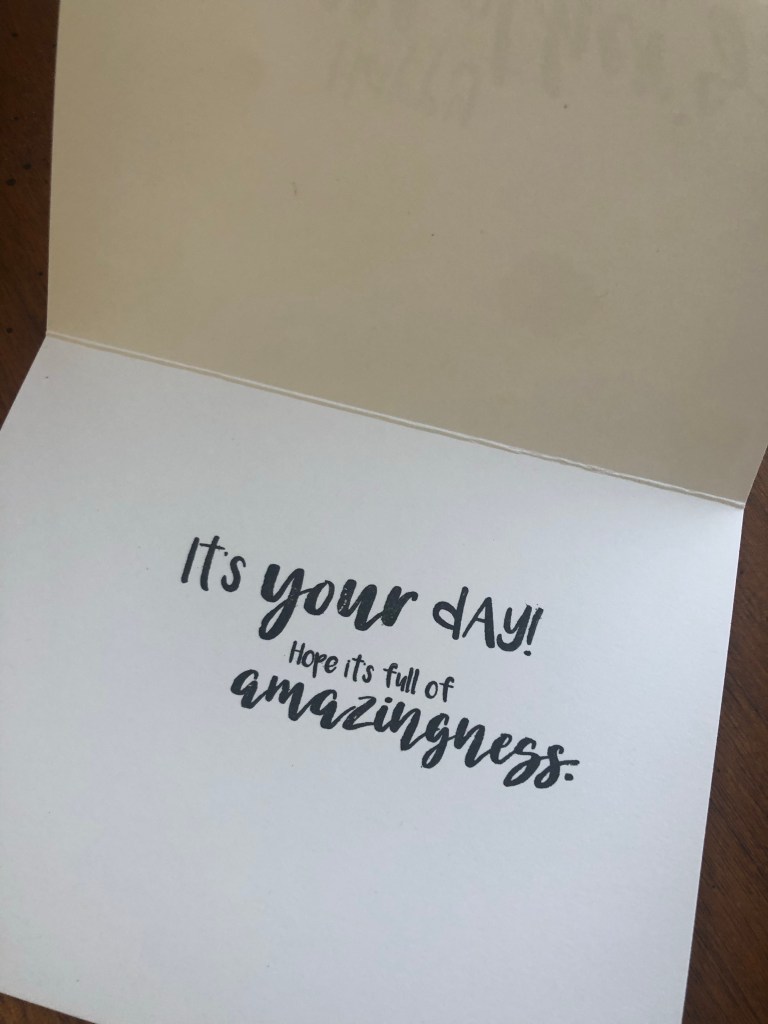 It's your dAy!
Hope it's full of
amazingness.